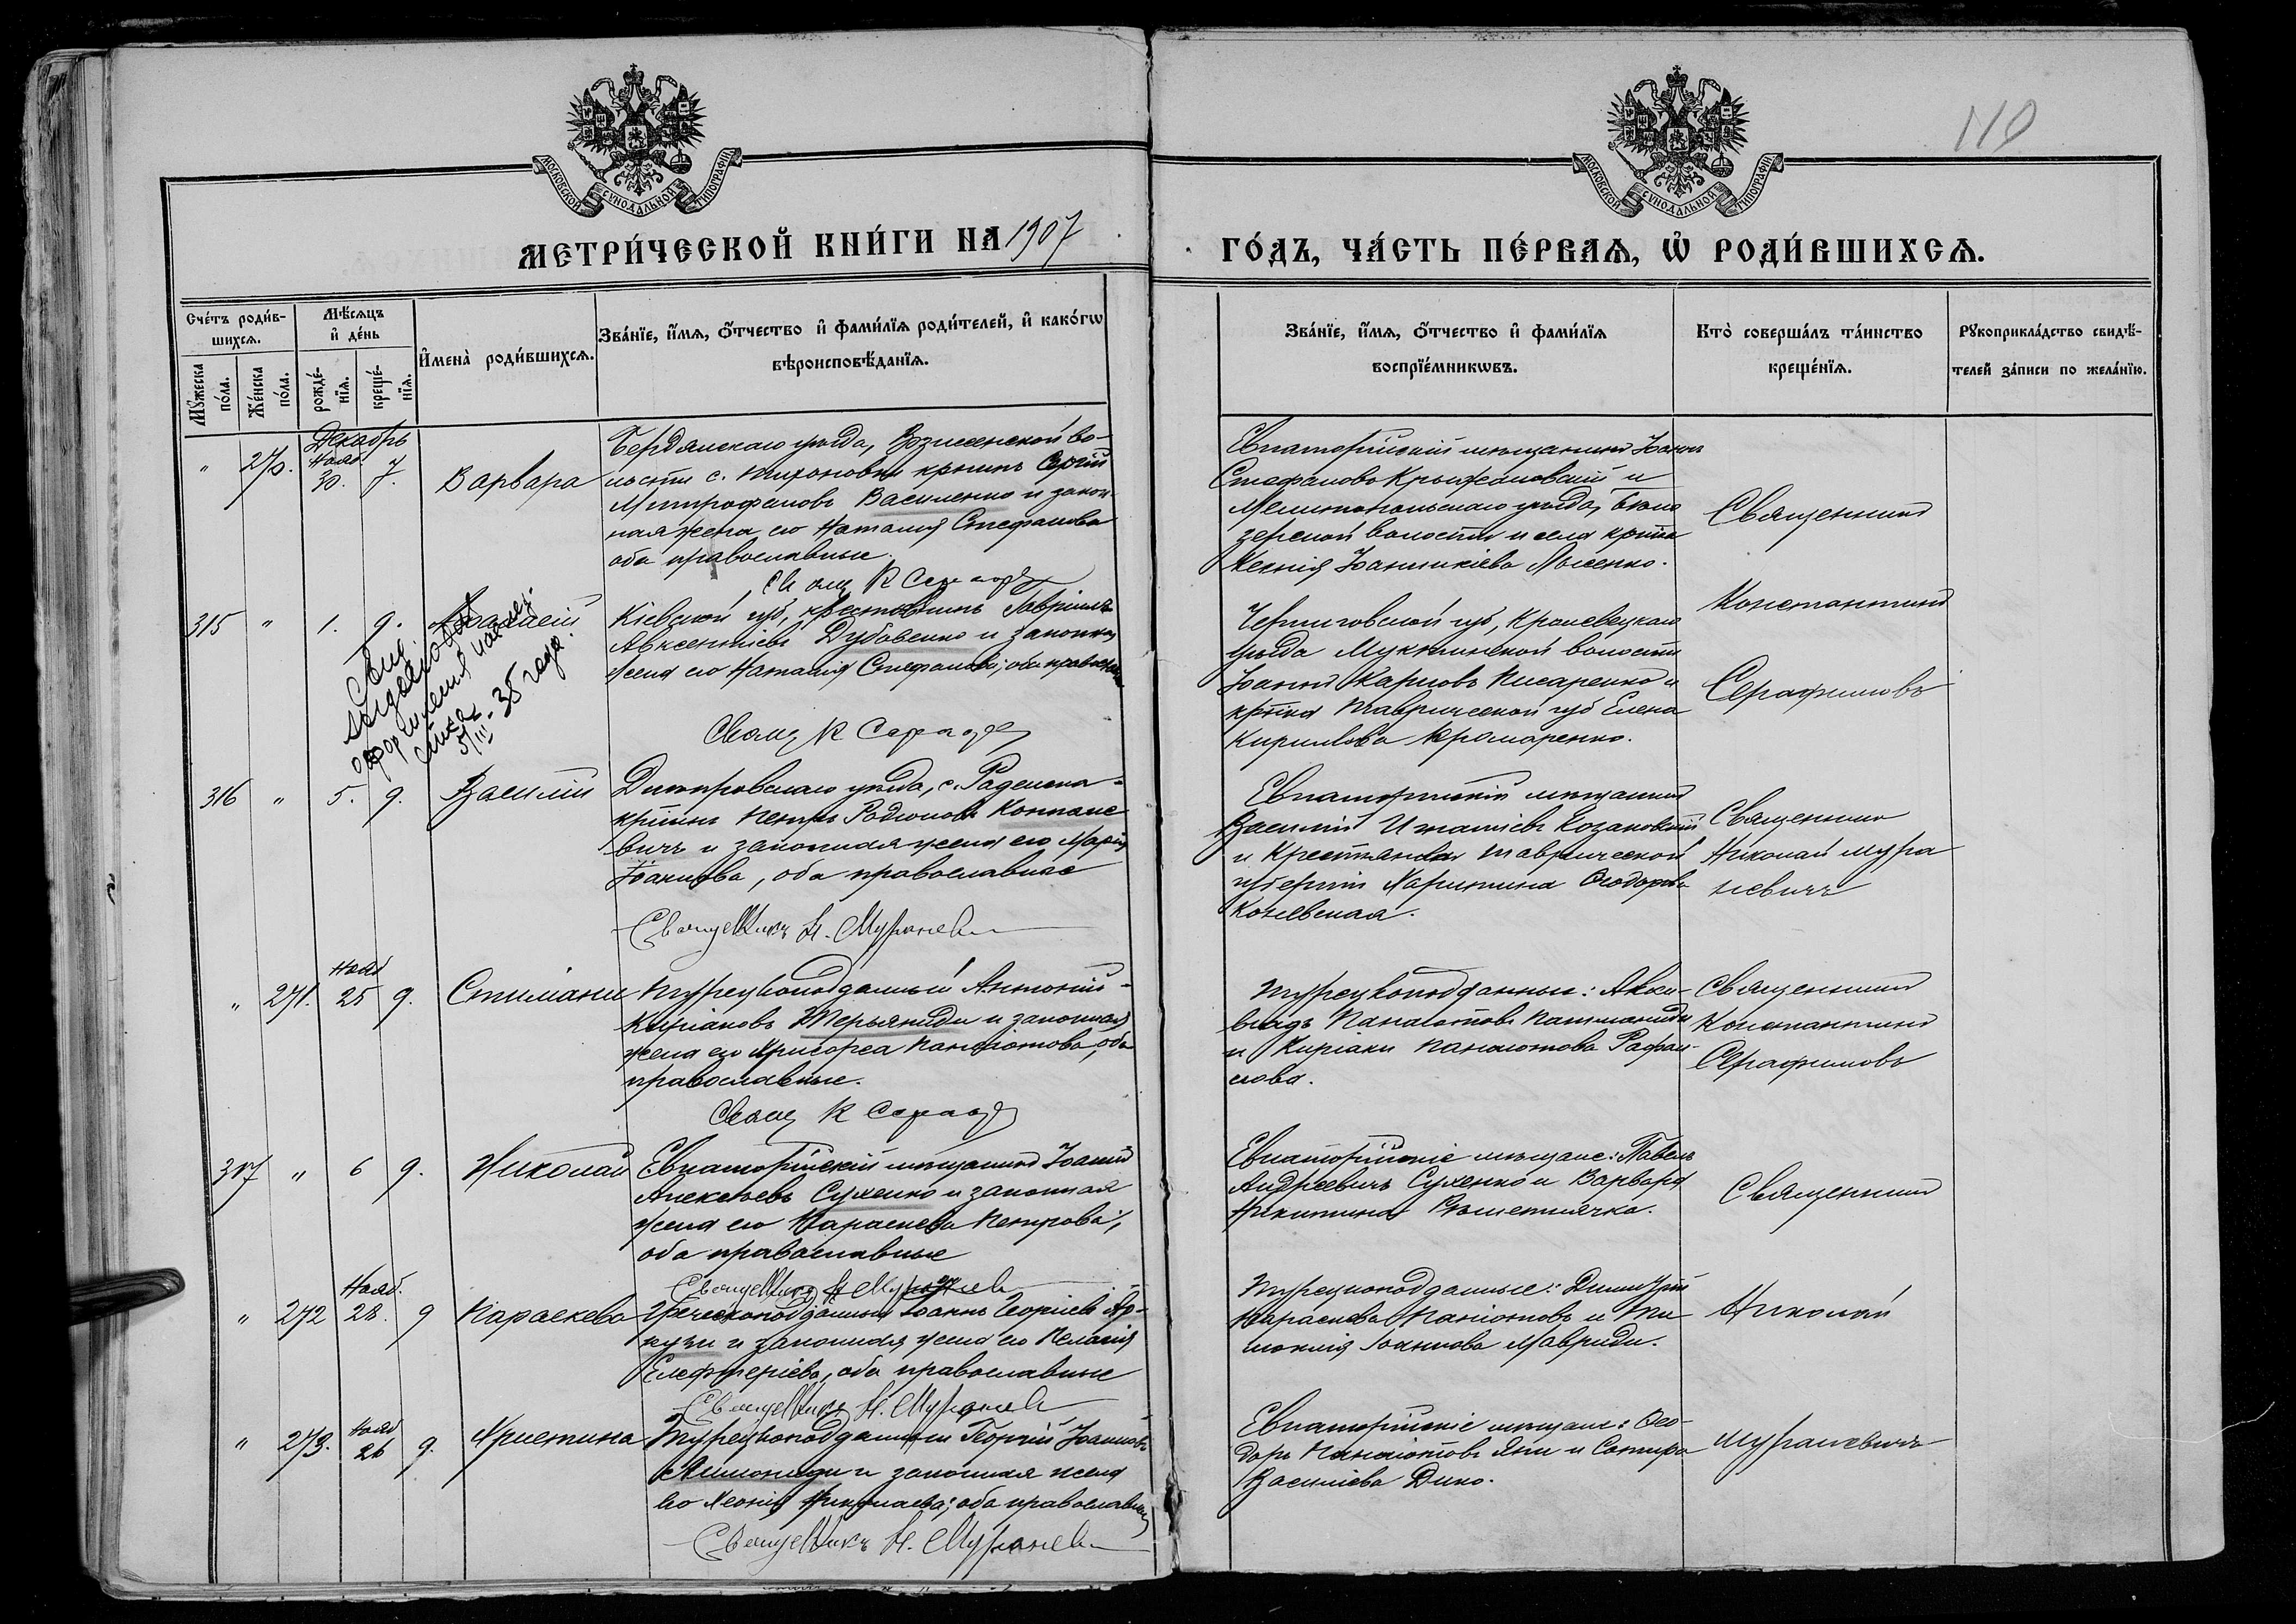 110
МОСКОВСКОЙ СѴНОДАЛЬНОЙ ТИПОГРАФІИ
МОСКОВСКОЙ СѴНОДАЛЬНОЙ ТИПОГРАФІИ
МЕТРИ́ЧЕСКОЙ КНИ́ГИ НА 1907
ГО́ДЪ, ЧА́СТЬ ПЕ́РВАѦ, Ѡ҆ РОДИ́ВШИХСѦ.
Сче́тъ роди́в-
шихсѧ.
Мꙋ́жеска по́ла.
Же́нска по́ла.
Мѣ́сѧцъ
и҆ де́нь
рожде́-
нїѧ.
креще́-
нїѧ.
И҆мена̀ роди́вшихсѧ.
Зва́нїе, и҆́мѧ, ѻ҆́тчество и҆ фами́лїѧ роди́телей, и҆ како́гѡ
вѣроисповѣ́данїѧ.
Зва́нїе, и҆́мѧ, ѻ҆́тчество и҆ фами́лїѧ
воспрїе́мникѡвъ.
Кто̀ соверша́лъ та́инство
креще́нїѧ.
Рꙋкоприкла́дство свидѣ́-
телей за́писи по жела́нїю.
" 270. Декабрь Нояб. 30. 7. Варвара
Бердянскаго уѣзда, Вознесенской во-
лости с. Тихоновки крнинъ Сергій
Митрофановъ Василенко и закон-
ная жена его Наталія Стефанова
оба православные.
Евпаторійскій мѣщанинъ Іоаннъ
Стефановъ Крыжановскій и
Мелитопольскаго уѣзда, Бѣло
зерской волости и села крнка
Ксенія Іоанникіева Лысенко.
Священникъ
Константинъ
Серафимовъ
315 " 1. 9.
Кіевской губ, крестьянинъ Гавріилъ
Авксентіевъ Дубовенко и законная
жена его Наталія Стефанова; оба православные
Свящ К
Черниговской губ, Кролевецкаго
уѣзда волости
Іоаннъ Карповъ Писаренко и
крнка Таврической губ Елена
Кириллова Крамаренко.
5/III - 35 года.
316 " 5. 9. Василій
Днѣпровскаго уѣзда, с. Раденска
крнинъ Петръ Родіоновъ Коппане
вичъ и законная жена его Марія
Іоаннова, оба православные
Священникъ Н. Мураневичъ
Евпаторійскій мѣщанинъ
Василій Игнатіевъ Козановскій
и Крестьянка Таврической
губерніи Харитина Ѳеодорова
Священникъ
Николай Мура
невичъ
" 271. Нояб 25 9. Стиліани
Турецкоподданный Антоній
Киріаковъ Терьяниди и законная
жена его Хрисорса Панаіотова, оба
православные.
Свящ К
Турецкоподданные: Алки-
віадъ Панаіотовъ
и Киріаки Панаіотова Рафаи-
лова.
Священникъ
Константинъ
Серафимовъ
317 " 6 9. Николай
Евпаторійскій мѣщанинъ Іоаннъ
Алексѣевъ Сухенко и законная
жена его Параскева Петрова;
оба православные
Священникъ Н Мураневичъ
Евпаторійскіе мѣщане: Павелъ
Андреевичъ Сухенко и Варвара
Никитина Рѣшетнячка.
Священникъ
" 272 Нояб. 28. 9 Параскева
Греческоподданный Іоаннъ Георгіевъ Ар-
кузи и законная жена его Пелагія
Елефтеріева, оба православные
Священникъ Н. Мураневичъ
Турецкоподданные: Димитрій
Параскева Панаіотовъ и Ти-
моклія Іоаннова Мавриди.
Николай
" 273. Нояб 26 9. Христина
Турецкоподданный Георгій Іоанновъ
и законная жена
его Ксенія Николаева; оба православные
Священникъ Н. Мураневичъ
Евпаторійскіе мѣщане: Ѳео-
доръ Панаіотовъ Яни и Сотира
Василіева Дико.
Мураневичъ